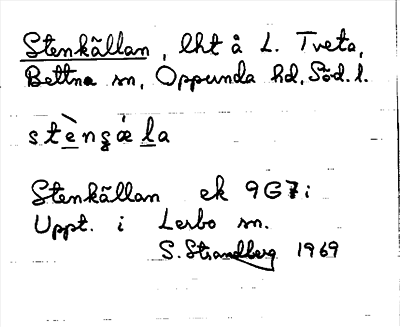 Stenkällan, lht å L. Tveta,
Bettna sn, Oppunda hd, Söd. l.
stèngǽla
Stenkällan ek 9G7i
Uppt. i Lerbo sn.
S. Strandberg 1969